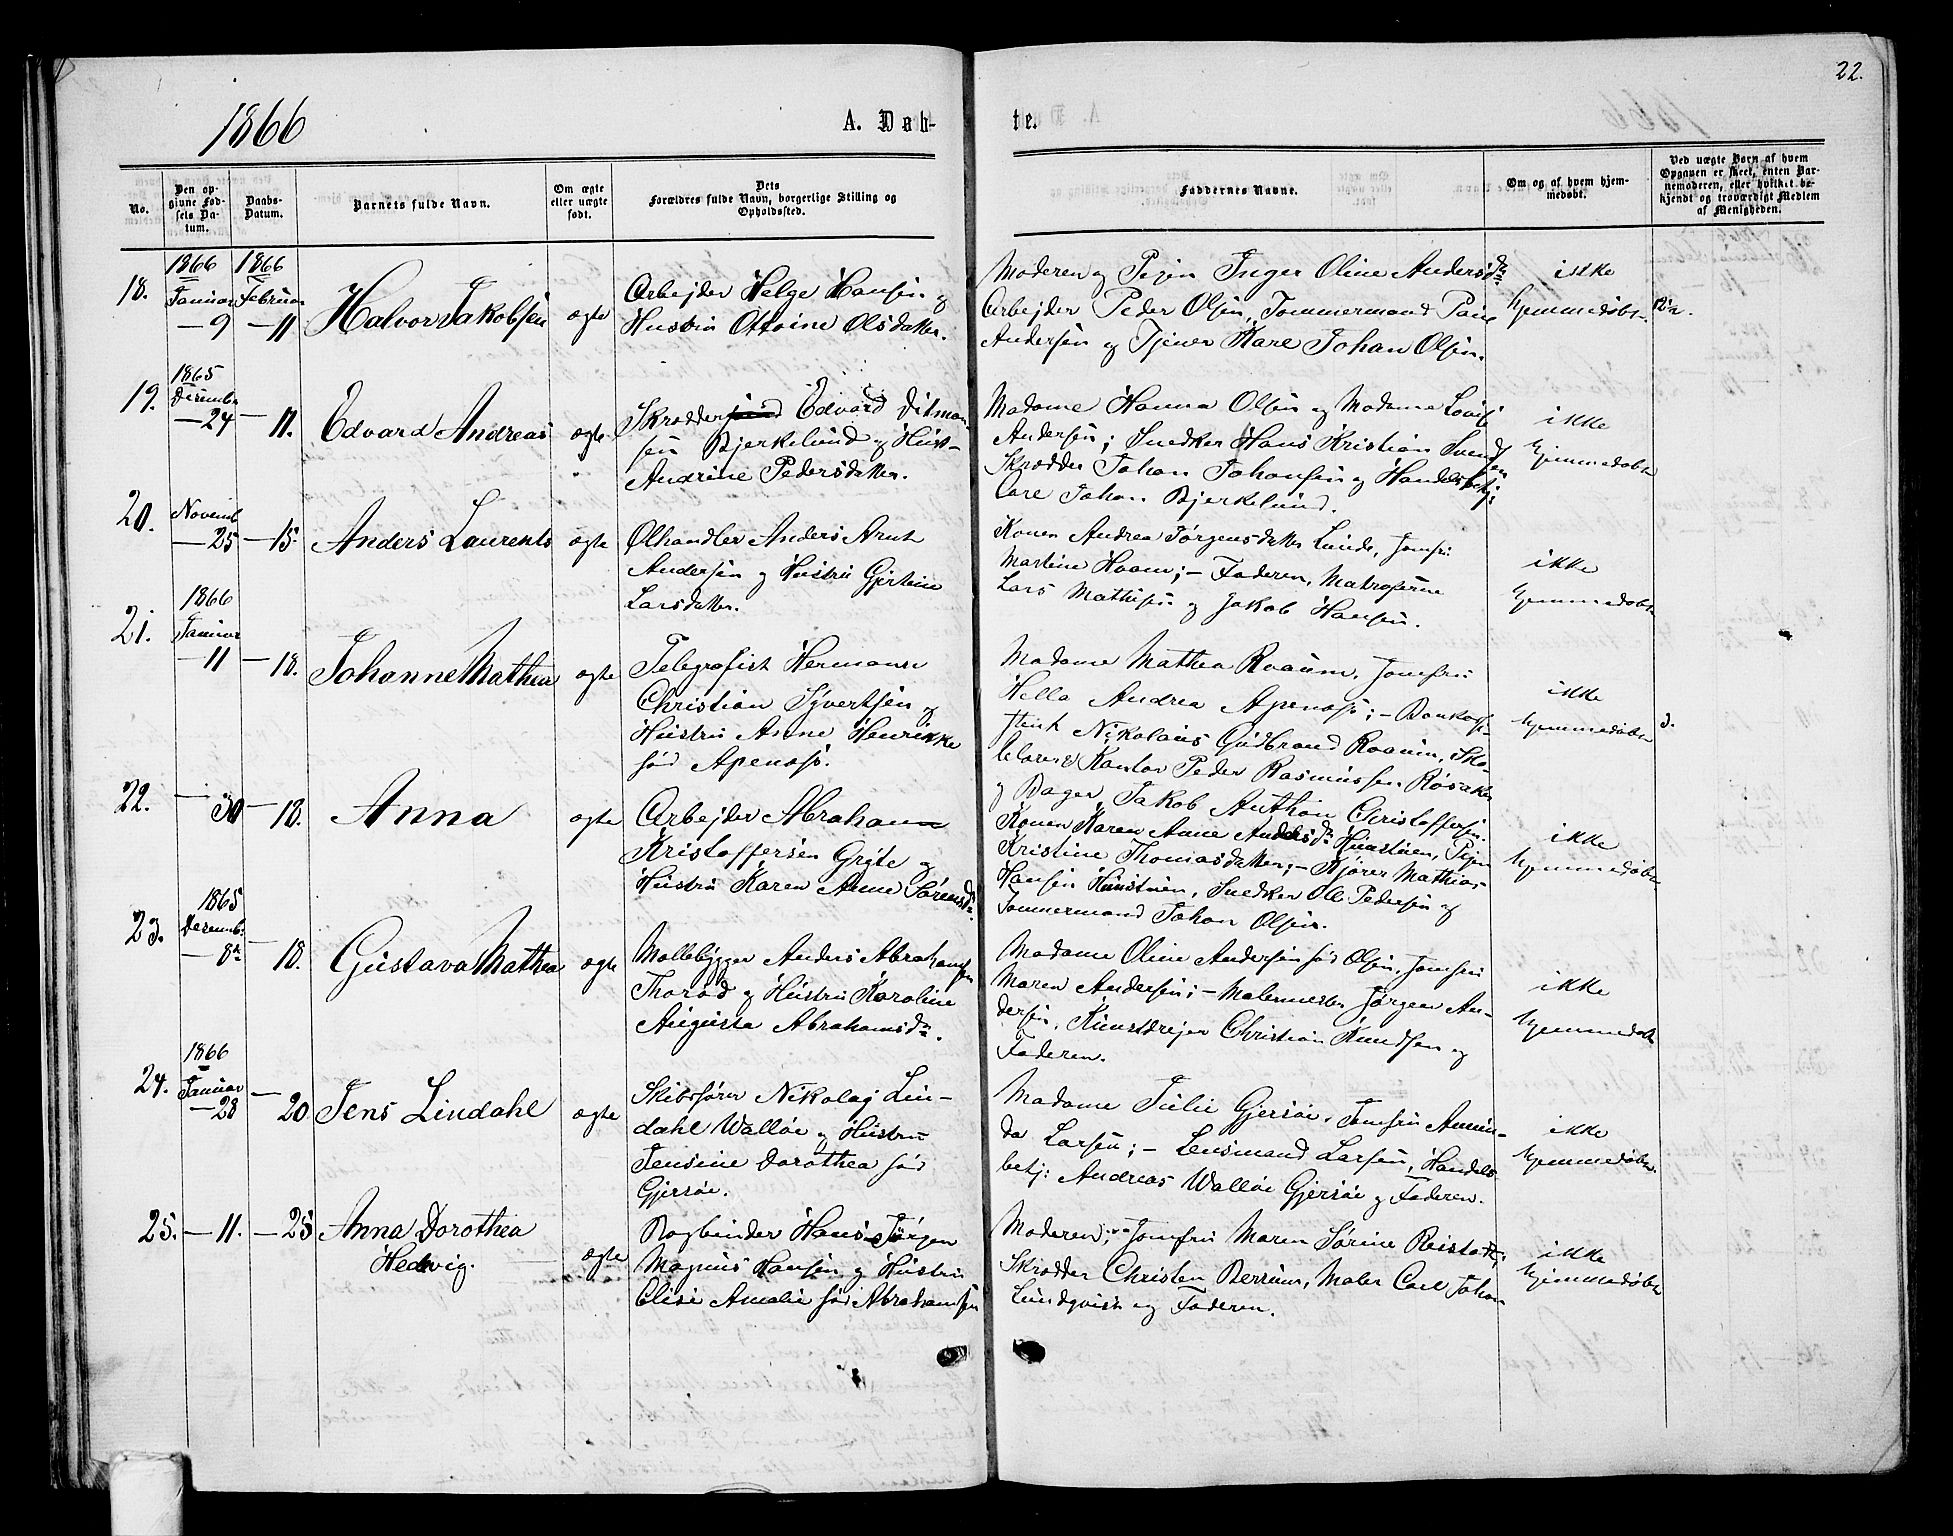 22.
1866
A. Døb-
te.
No.
Den op-
givne Fød-
sels Da-
tum.
Daabs-
Datum.
Barnets fulde Navn.
Om ægte
eller uægte
født.
Dets
Forældres fulde Navn, borgerlige Stilling og
Opholdssted.
Faddernes Navne.
Om og af hvem hjem-
medøbt.
Ved uægte Børn af hvem
Opgaven er skeet, enten Bar-
nemoderen, eller hvilket be-
kjendt og troværdigt Medlem
af Menigheden.
18.
1866
Januar
- 9
1866
Februar
- 11
Halvor Jakobsen
ægte
Arbejder Helge Hansen og
Hustru Ottoine Olsdatter.
Moderen og Pigen Inger Oline Andersdr
Arbejder Peder Olsen, Tømmermand
Andersen og Tjener Karl Johan Olsen.
ikke
hjemmedøbt.
19.
1865
Decembr
- 24
- 11.
Edvard Andreas
ægte
Skrædder Edvard Ditman-
sen Bjerkelund og Hust-
Andrine Pedersdatter.
Madame Hanna Olsen og Madame Lovise
Andersen; Snedker Hans Kristian Svendsen
Skrædder Johan Johansen og Handelsbetj:
Carl Johan Bjerkelund.
ikke
hjemmedøbt
20.
Novemb
- 25
- 15.
Anders Laurents
ægte
Ølhandler Anders Arnt
Andersen og Hustru Gjertine
Larsdatter.
Konen Andrea Jørgensdatter Lunde, Jomfru
Martine Hvam; - Faderen, Matroserne
Lars Mathisen og Jakob Hansen.
ikke
hjemmedøbt
21.
1866
Januar
- 11
- 18.
Johanne Mathea
ægte
Telegrafist Hermann
Christian Syvertsen og
Hustru Anne Henrikke
fød Apenæss.
Madame Mathea Roaum, Jomfru
Hella Andrea Apenæss; - Bankassi-
stent Nikolaus Gudbrand Roaum, Sko-
lelærer Kantor Peder Rasmussen Røsaker
og Bager Jakob Anthon Christoffersen.
ikke
hjemmedøbt
3.
22.
- 30
- 18.
Anna
ægte
Arbejder Abraham
Kristoffersen Gryte og
Hustru Karen Anne Sørensdr.
Konen Karen Anne Andersdr Hunstuen, Pigen
Kristine Thomasdatter; - Kjører Mathias
Hansen Hunstuen, Snedker Ole Pedersen og
Tømmermand Johan Olsen.
ikke
hjemmedøbt
23.
1865
Decemb:
- 8de
- 18.
Gustava Mathea
ægte
Møllebygger Anders Abrahamsen
Thorød og Hustru Karoline
Augusta Abrahamsdr.
Madame Oline Andersen fød Olsen, Jomfru
Maren Andersen; - Malermester Jørgen An-
dersen, Kunstdrejer Christian Knudsen og
Faderen.
ikke
hjemmedøbt
24.
1866
Januar
- 28
- 20
Jens Lindahl
ægte
Skibsfører Nikolaj Lin-
dahl Walløe og Hustru
Jensine Dorothea fød
Gjersøe.
Madame Julie Gjersøe, Jomfru Amun-
da Larsen; - Lensmand Larsen, Handels-
betj: Andreas Walløe Gjersøe og Faderen.
ikke
hjemmedøbt.
25.
- 11.
- 25
Anna Dorothea
Hedevig.
ægte
Bogbinder Hans Jörgen
Magnus Hansen og Hustru
Elise Amalie fød Abrahamsen
Moderen, Jomfru Maren Sørine Reistad;
Skrædder Christen Berrum, Maler Carl Johan
Lundqvist og Faderen.
ikke
hjemmedøbt